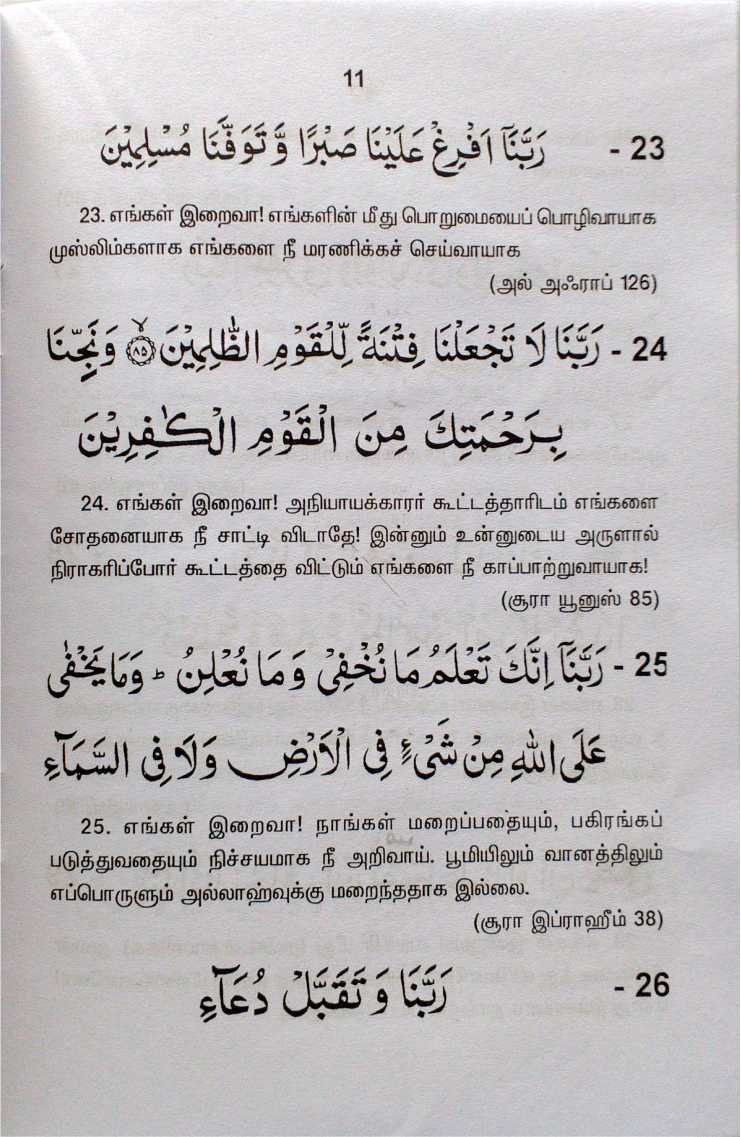 11
23 - رَبَّنَآ اَفْرِغْ عَلَيْنَا صَبْرًا وَّتَوَفَّنَا مُسْلِمِيْنَ
23. எங்கள் இறைவா! எங்களின் மீது பொறுமையைப் பொழிவாயாக
முஸ்லிம்களாக எங்களை நீ மரணிக்கச் செய்வாயாக
(அல் அஃராப் 126)
24 - رَبَّنَا لَا تَجْعَلْنَا فِتْنَةً لِّلْقَوْمِ الظّٰلِمِيْنَ ۙ‏﴿۸۵﴾ وَنَجِّنَا
بِرَحْمَتِكَ مِنَ الْقَوْمِ الْكٰفِرِيْنَ
24. எங்கள் இறைவா! அநியாயக்காரர் கூட்டத்தாரிடம் எங்களை
சோதனையாக நீ சாட்டி விடாதே! இன்னும் உன்னுடைய அருளால்
நிராகரிப்போர் கூட்டத்தை விட்டும் எங்களை நீ காப்பாற்றுவாயாக!
(சூரா யூனுஸ் 85)
25 - رَبَّنَآ اِنَّكَ تَعْلَمُ مَا نُخْفِيْ وَمَا نُعْلِنُ ؕ وَمَا يَخْفٰى
عَلَى اللّٰهِ مِنْ شَيْءٍ فِي الْاَرْضِ وَلَا فِي السَّمَآءِ
25. எங்கள் இறைவா! நாங்கள் மறைப்பதையும், பகிரங்கப்
படுத்துவதையும் நிச்சயமாக நீ அறிவாய். பூமியிலும் வானத்திலும்
எப்பொருளும் அல்லாஹ்வுக்கு மறைந்ததாக இல்லை.
(சூரா இப்ராஹீம் 38)
26 - رَبَّنَا وَتَقَبَّلْ دُعَآءِ